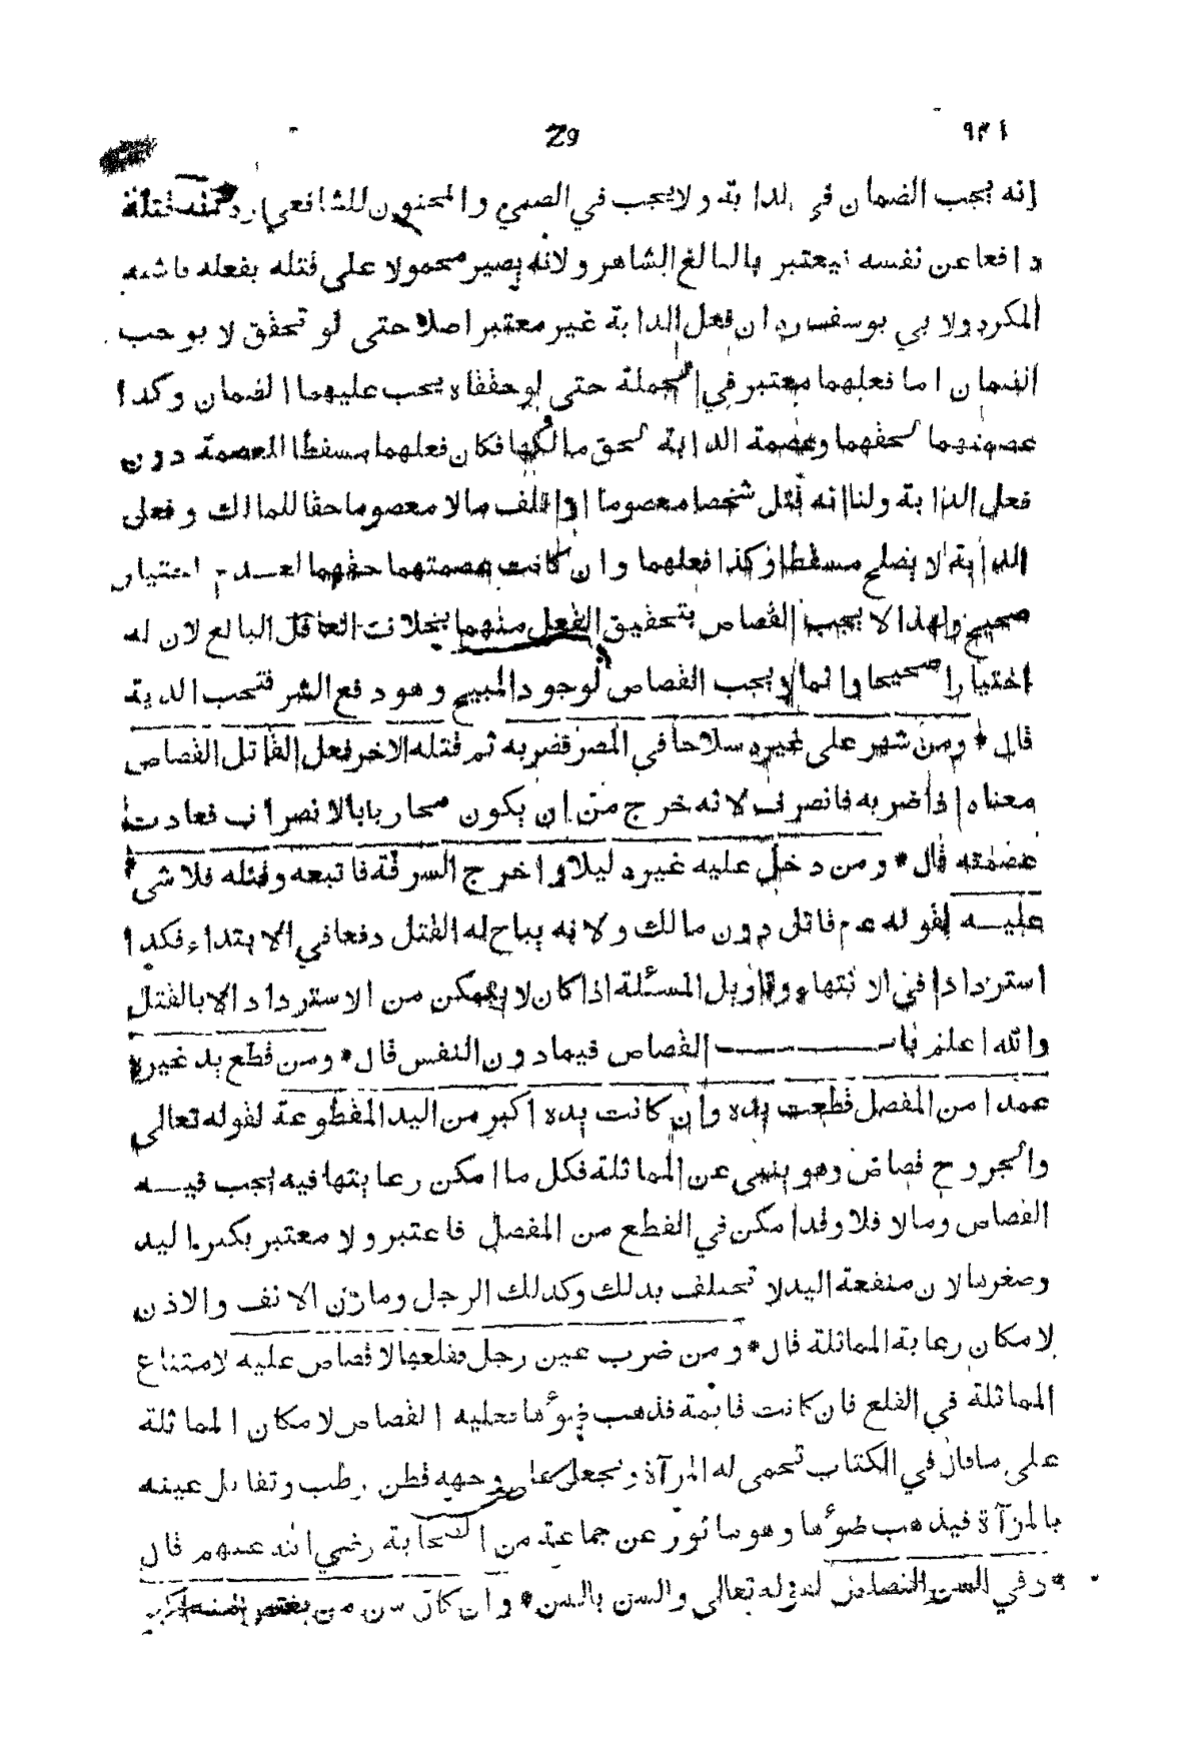 ٩٣١ 29
انه يجب الضمان في الدابة ولا يجب في الصبي والمجنون للشافعي رد انه قتله
دافعا عن نفسه فيعتبر بالبالغ الشاهر ولانه يصير محمولا على قتله بفعله فاشبه
المكره ولابي يوسف رد ان فعل الدابة غير معتبر اصلا حتى لو تحقق لا يوجب
الضمان اما فعلهما معتبر في الجملة حتى لو حققناه يجب عليهما الضمان وكذا
عصمتهما لحقهما وعصمة الدابة لحق مالكها فكان فعلهما مسقطا للعصمة دون
فعل الدابة ولنا انه قتل شخصا معصوما او اتلف مالا معصوما حقا للمالك وفعل
الدابة لا يصلح مسقطا وكذا فعلهما وان كانت عصمتهما حقهما لعدم اختيار
صحيح ولهذا لا يجب القصاص بتحقيق الفعل منهما بخلاف العاقل البالغ لان له
اختيارا صحيحا وانما لا يجب القصاص لوجود المبيح وهو دفع الشر فتجب الدية
قال * ومن شهر على غيره سلاحا في المصر فضربه ثم قتله الاخر فعلى القاتل القصاص
معناه اذا ضربه فانصرف لانه خرج من ان يكون محاربا بالانصراف فعادت
عصمته قال * ومن دخل عليه غيره ليلا واخرج السرقة فاتبعه وقتله فلا شى *
عليه لقوله عم قاتل دون مالك ولانه يباح له القتل دفعا في الابتداء فكذا
استردادا في الانتهاء وتاويل المسئلة اذا كان لا يتمكن من الاسترداد الا بالقتل
والله اعلم باب القصاص فيما دون النفس قال * ومن قطع يد غيره
عمدا من المفصل قطعت يده وان كانت يده اكبر من اليد المقطوعة لقوله تعالى
والجروح قصاص وهو ينبى عن المماثلة فكل ما امكن رعايتها فيه يجب فيه
القصاص وما لا فلا وقد امكن في القطع من المفصل فاعتبر ولا معتبر بكبر اليد
وصغرها لان منفعة اليد لا تختلف بذلك وكذلك الرجل ومارن الانف والاذن
لامكان رعاية المماثلة قال * ومن ضرب عين رجل فقلعها لا قصاص عليه لامتناع
المماثلة في القلع فان كانت قايمة فذهب ضوءها فعليه القصاص لامكان المماثلة
على ما قال في الكتاب تحمى له المرآة ويجعل على وجهه قطن رطب وتقابل عينه
بالمرآة فيذهب ضوءها وهو ماثور عن جماعة من الصحابة رضي الله عنهم قال
* وفي السن القصاص لقوله تعالى والسن بالسن * وان كان سن من يقتص منه اكبر